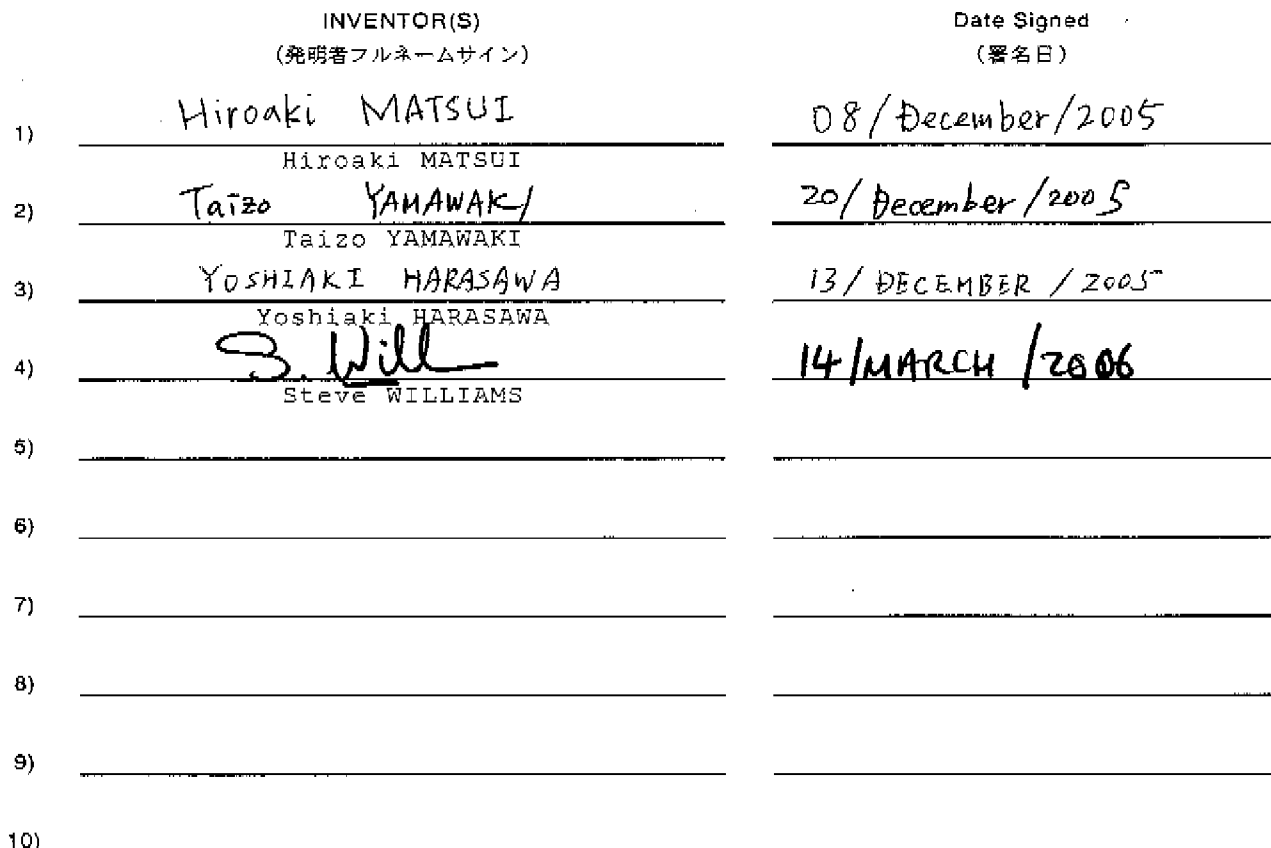 INVENTOR(S) Date Signed
(発明者フルネームサイン) (署名日)
1) Hiroaki MATSUI 08/December/2005
Hiroaki MATSUI
2) Taizo YAMAWAKI 20/December/2005
Taizo YAMAWAKI
3) YOSHIAKI HARASAWA 13/DECEMBER/2005
Yoshiaki HARASAWA
4) S. Will 14/MARCH/2006
Steve WILLIAMS
5)
6)
7)
8)
9)
10)